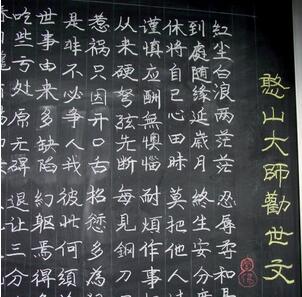 憨山大師勸世文
红尘白浪兩茫茫 忍辱柔和
到處隨缘延歲月 終生安分
休將自己心田昧 莫把他人
谨慎应酬無懊惱 耐煩作事
从来硬弩弦先断 每見鋼刀
惹禍只因闲口舌 招愆多為
是非不必争人我 彼此何須
世事由来多缺陷 幻軀焉得
吃些亏处原无碍 退讓三分